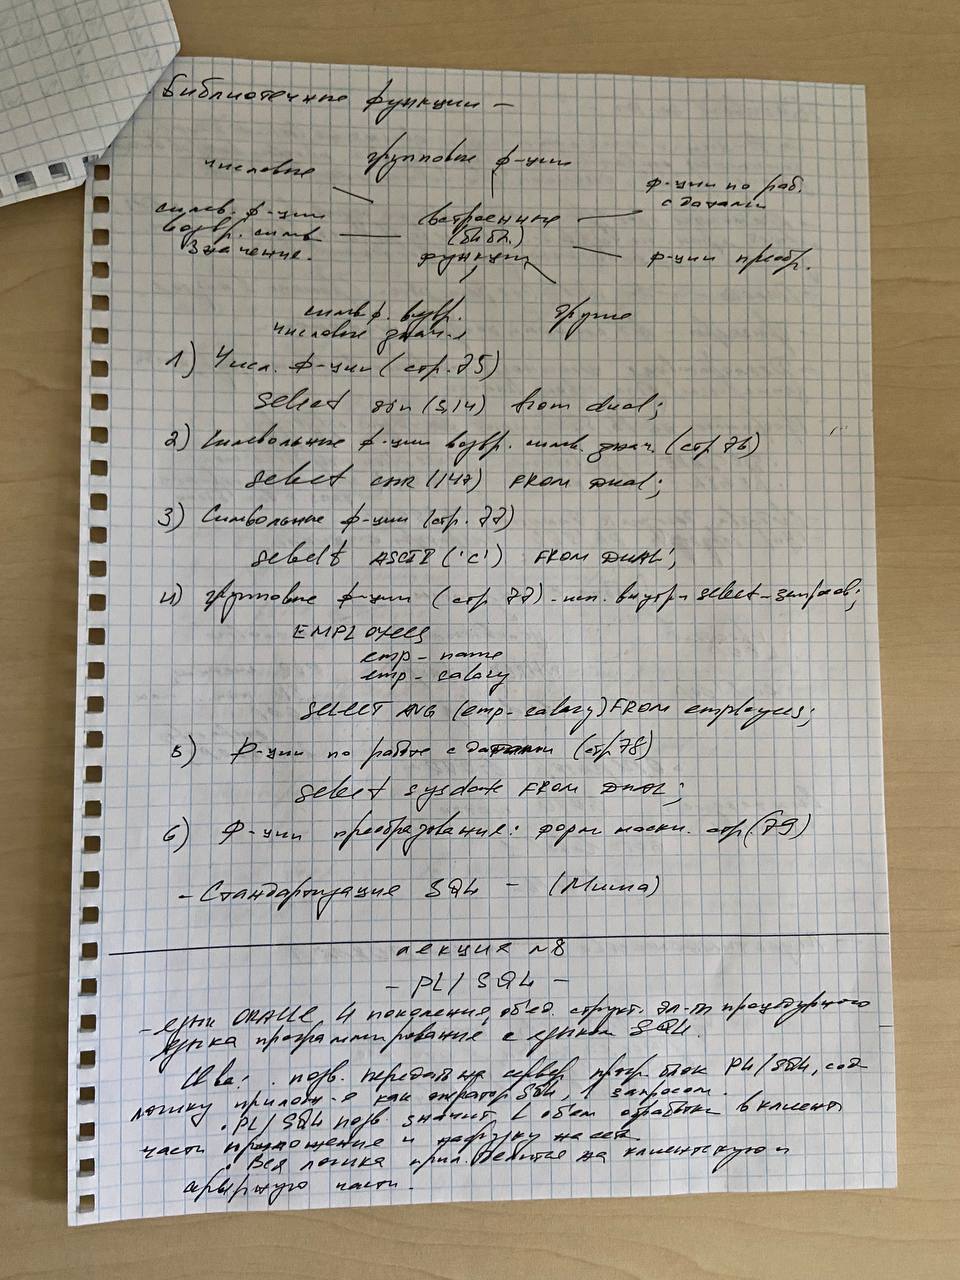 Библиотечные функции –
групповые ф-ции
числовые
ф-ции по раб.
с датами
симв. ф-ции
возвр. симв.
значение.
встроенные
(библ.)
функции
ф-ции преобр.
симв ф. возвр.
числовые знач-я
другие
1) Числ. ф-ции (стр. 75)
select sin (3,14) from dual;
2) Символьные ф-ции возвр. симв. знач. (стр 76)
select CHR (147) FROM Dual;
3) Символьные ф-ции (стр. 77)
select ASCII ('C') FROM DUAL;
4) групповые ф-ции (стр 77) - исп. внутри select-запросов;
EMPLOYEES
emp-name
emp-salary
SELECT AVG (emp-salary) FROM employees;
5) Ф-ции по работе с датами (стр 78)
select sysdate FROM DUAL;
6) Ф-ции преобразования: форм маски. стр (79)
- Стандартизация SQL - (Миша)
лекция №8
- PL/SQL -
- язык ORACLE 4 поколения, объед. структ. эл-ты процедурного
языка программирования с языком SQL.
позв. передать на сервер прогр блок PL/SQL, сод
логику прилож-я как оператор SQL, 1 запросом.
. PL/SQL позв значит ↓ объем обработки в клиент
части приложения и нагрузку на сеть
. Вся логика прил. делится на клиентскую и
серверную части.